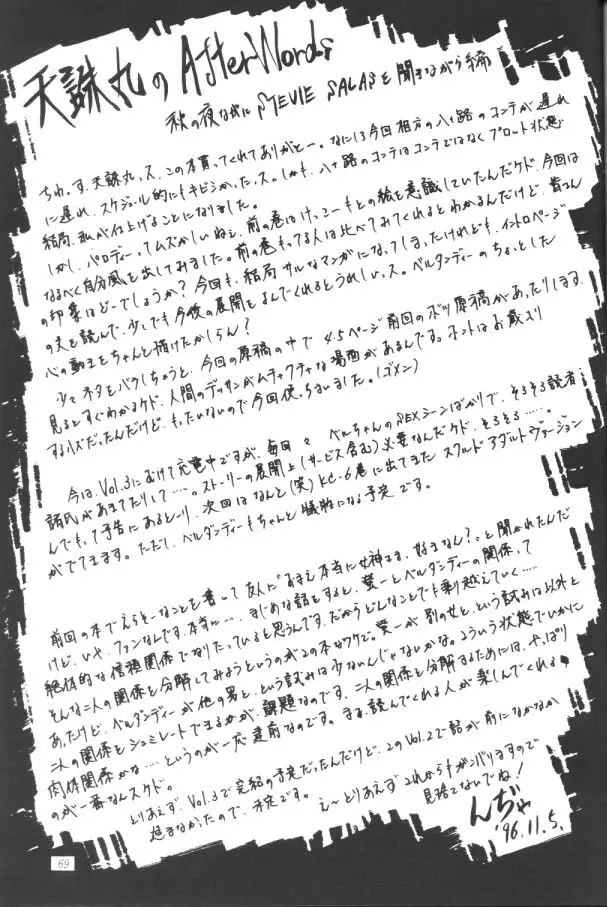 天誅丸の After Words
秋の夜ながに STEVIE SALASを聞きながら編
ちわ。す、天誅丸っス、この本買ってくれてありがとー。なにせ今回相方の八十路のコンテが遅れ
に遅れ、スケジュール的にもキビシかったっス。しかも、八十路のコンテはコンテではなくプロット状態
結局、私が仕上げることになりました。
しかし、パロディーってムズかしいねぇ、前の巻はけっこーもとの絵を意識していたんだケド、今回は
なるべく自分風を出してみました。前の巻もってる人は比べてみてくれるとわかるんだけど、皆さん
の印象はどーでしょうか?今回も、結局サルなマンガになってしまったけれども、イントロページ
の文を読んで、少しでも今後の展開をよんでくれるとうれしいっス。ベルダンディーのちょっとした
心の動きをちゃんと描けたかしらん?
少々ネタをバラしちゃうと、今回の原稿の中で 4.5ページ前回のボツ原稿があったりします。
見るとすぐわかるケド、人間のデッサンがムチャクチャな場面があるんです。ホントはお蔵入り
するハズだったんだけど、もったいないので今回使っちまいました。(ゴメン)
今は、Vol.3にむけて充電中ですが、毎回々 ベルちゃんのSEXシーンばかりで、そろそろ読者
諸氏があきてたりして…。ストーリーの展開上(サービス含む)必要なんだケド、そろそろ……。
んでもって予告にあるとーり、次回はなんと(笑)KC-6巻に出てきた スクルド アダルトヴァージョン
がでてきます。ただし、ベルダンディーもちゃんと犠牲になる予定です。
前回の本でえらそーなことを書いて友人に"おまえ本当に女神さま、好きなん?"と聞かれたんだ
けど、いや、ファンなんです。本当に…、まじめな話をすると、螢一とベルダンディーの関係って
絶体的な信頼関係でなりたっていると思うんです。だからどんなことでも乗り越えていく……
そんな二人の関係を分解してみようというのがこの本なワケで。螢一が別の女と、という試みは以外と
あったけど、ベルダンディーが他の男と、という試みは少ないんじゃないかな。こういう状態でいかに
二人の関係をシュミレートできるかが、課題なのです。二人の関係を分解するためには、やっぱり
肉体関係かな…というのが一応建前なのです。まぁ、読んでくれる人が楽しんでくれる
のが一番なんスケド。
とりあえず、Vol.3で完結の予定だったんだけど、このVol.2で話が前になかなか
進まなかったので、未定です。
え〜とりあえず これからもガンバリますので
見捨てないでね!
んぢゃ
'96.11.5.
69